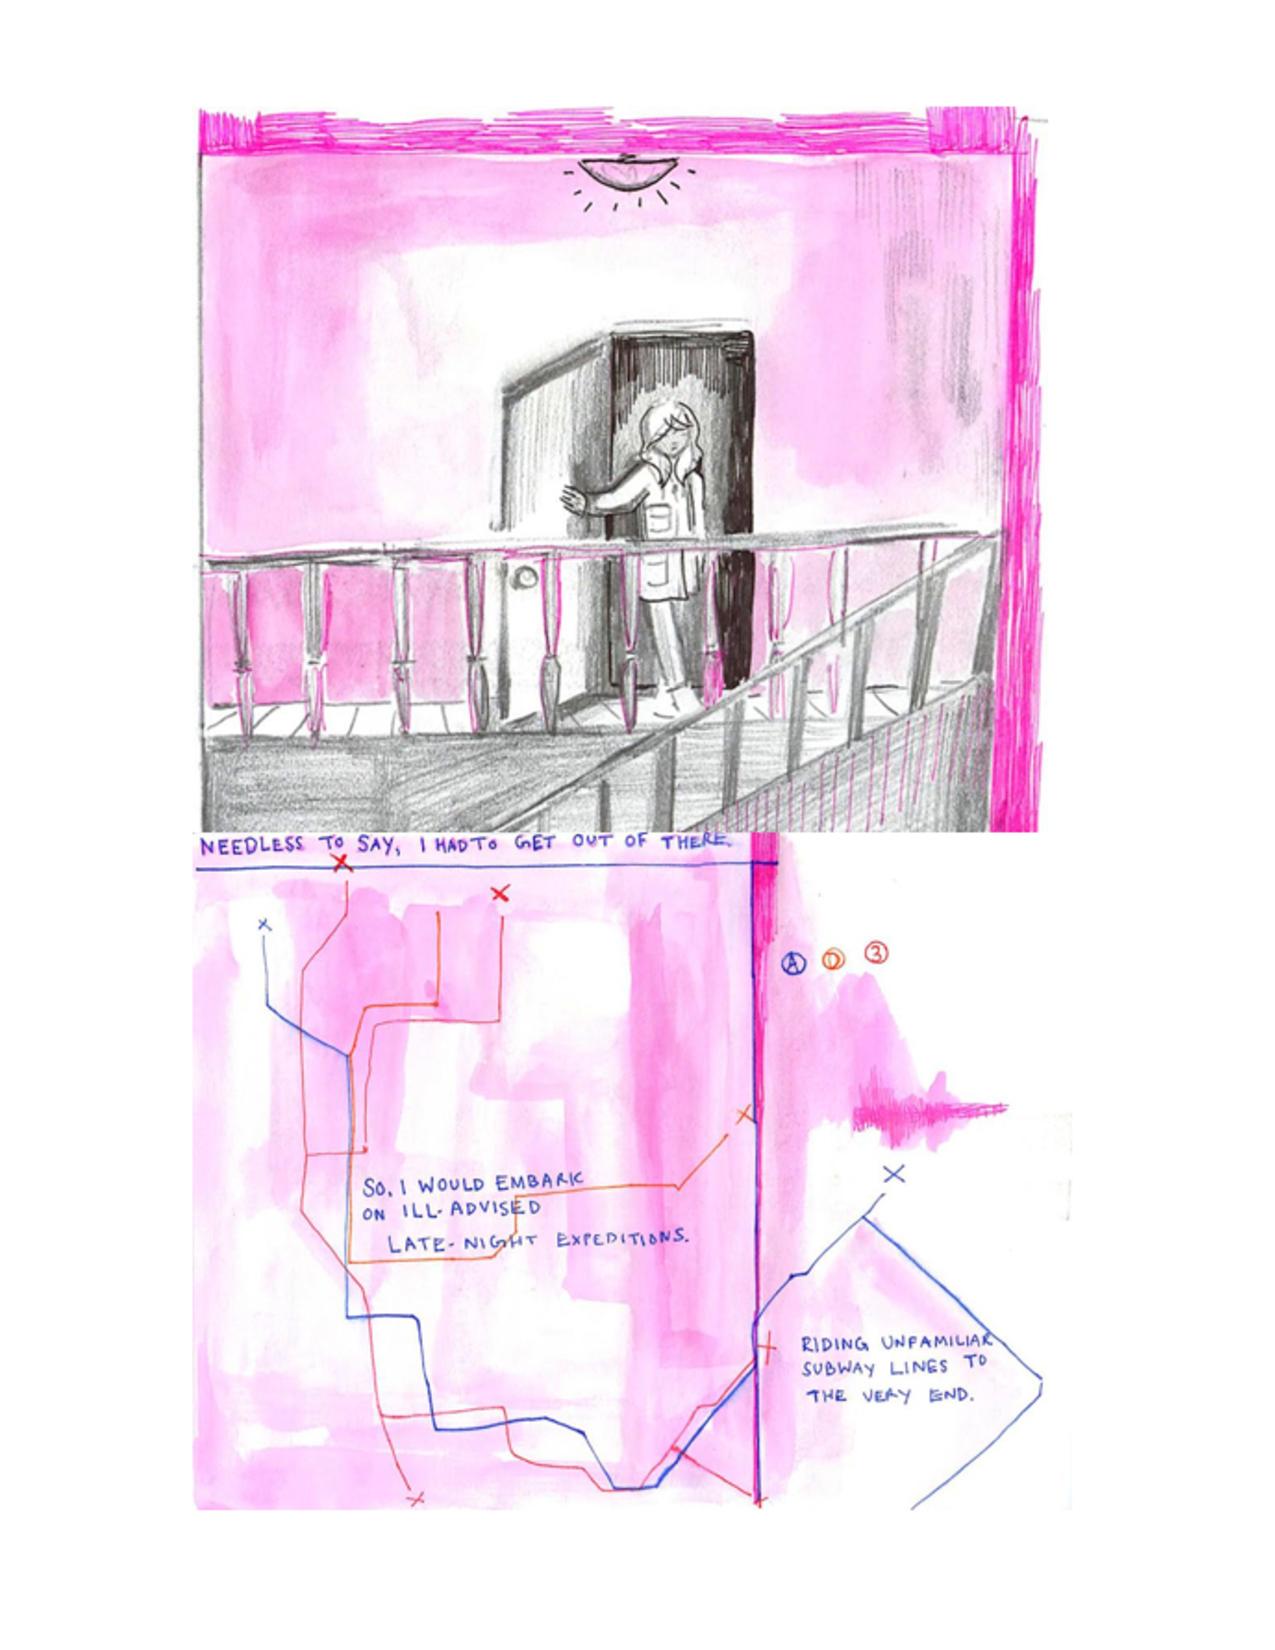 NEEDLESS TO SAY, I HAD TO GET OUT OF THERE.
A D 3
SO, I WOULD EMBARK
ON ILL-ADVISED
LATE-NIGHT EXPEDITIONS.
RIDING UNFAMILIAR
SUBWAY LINES TO
THE VERY END.